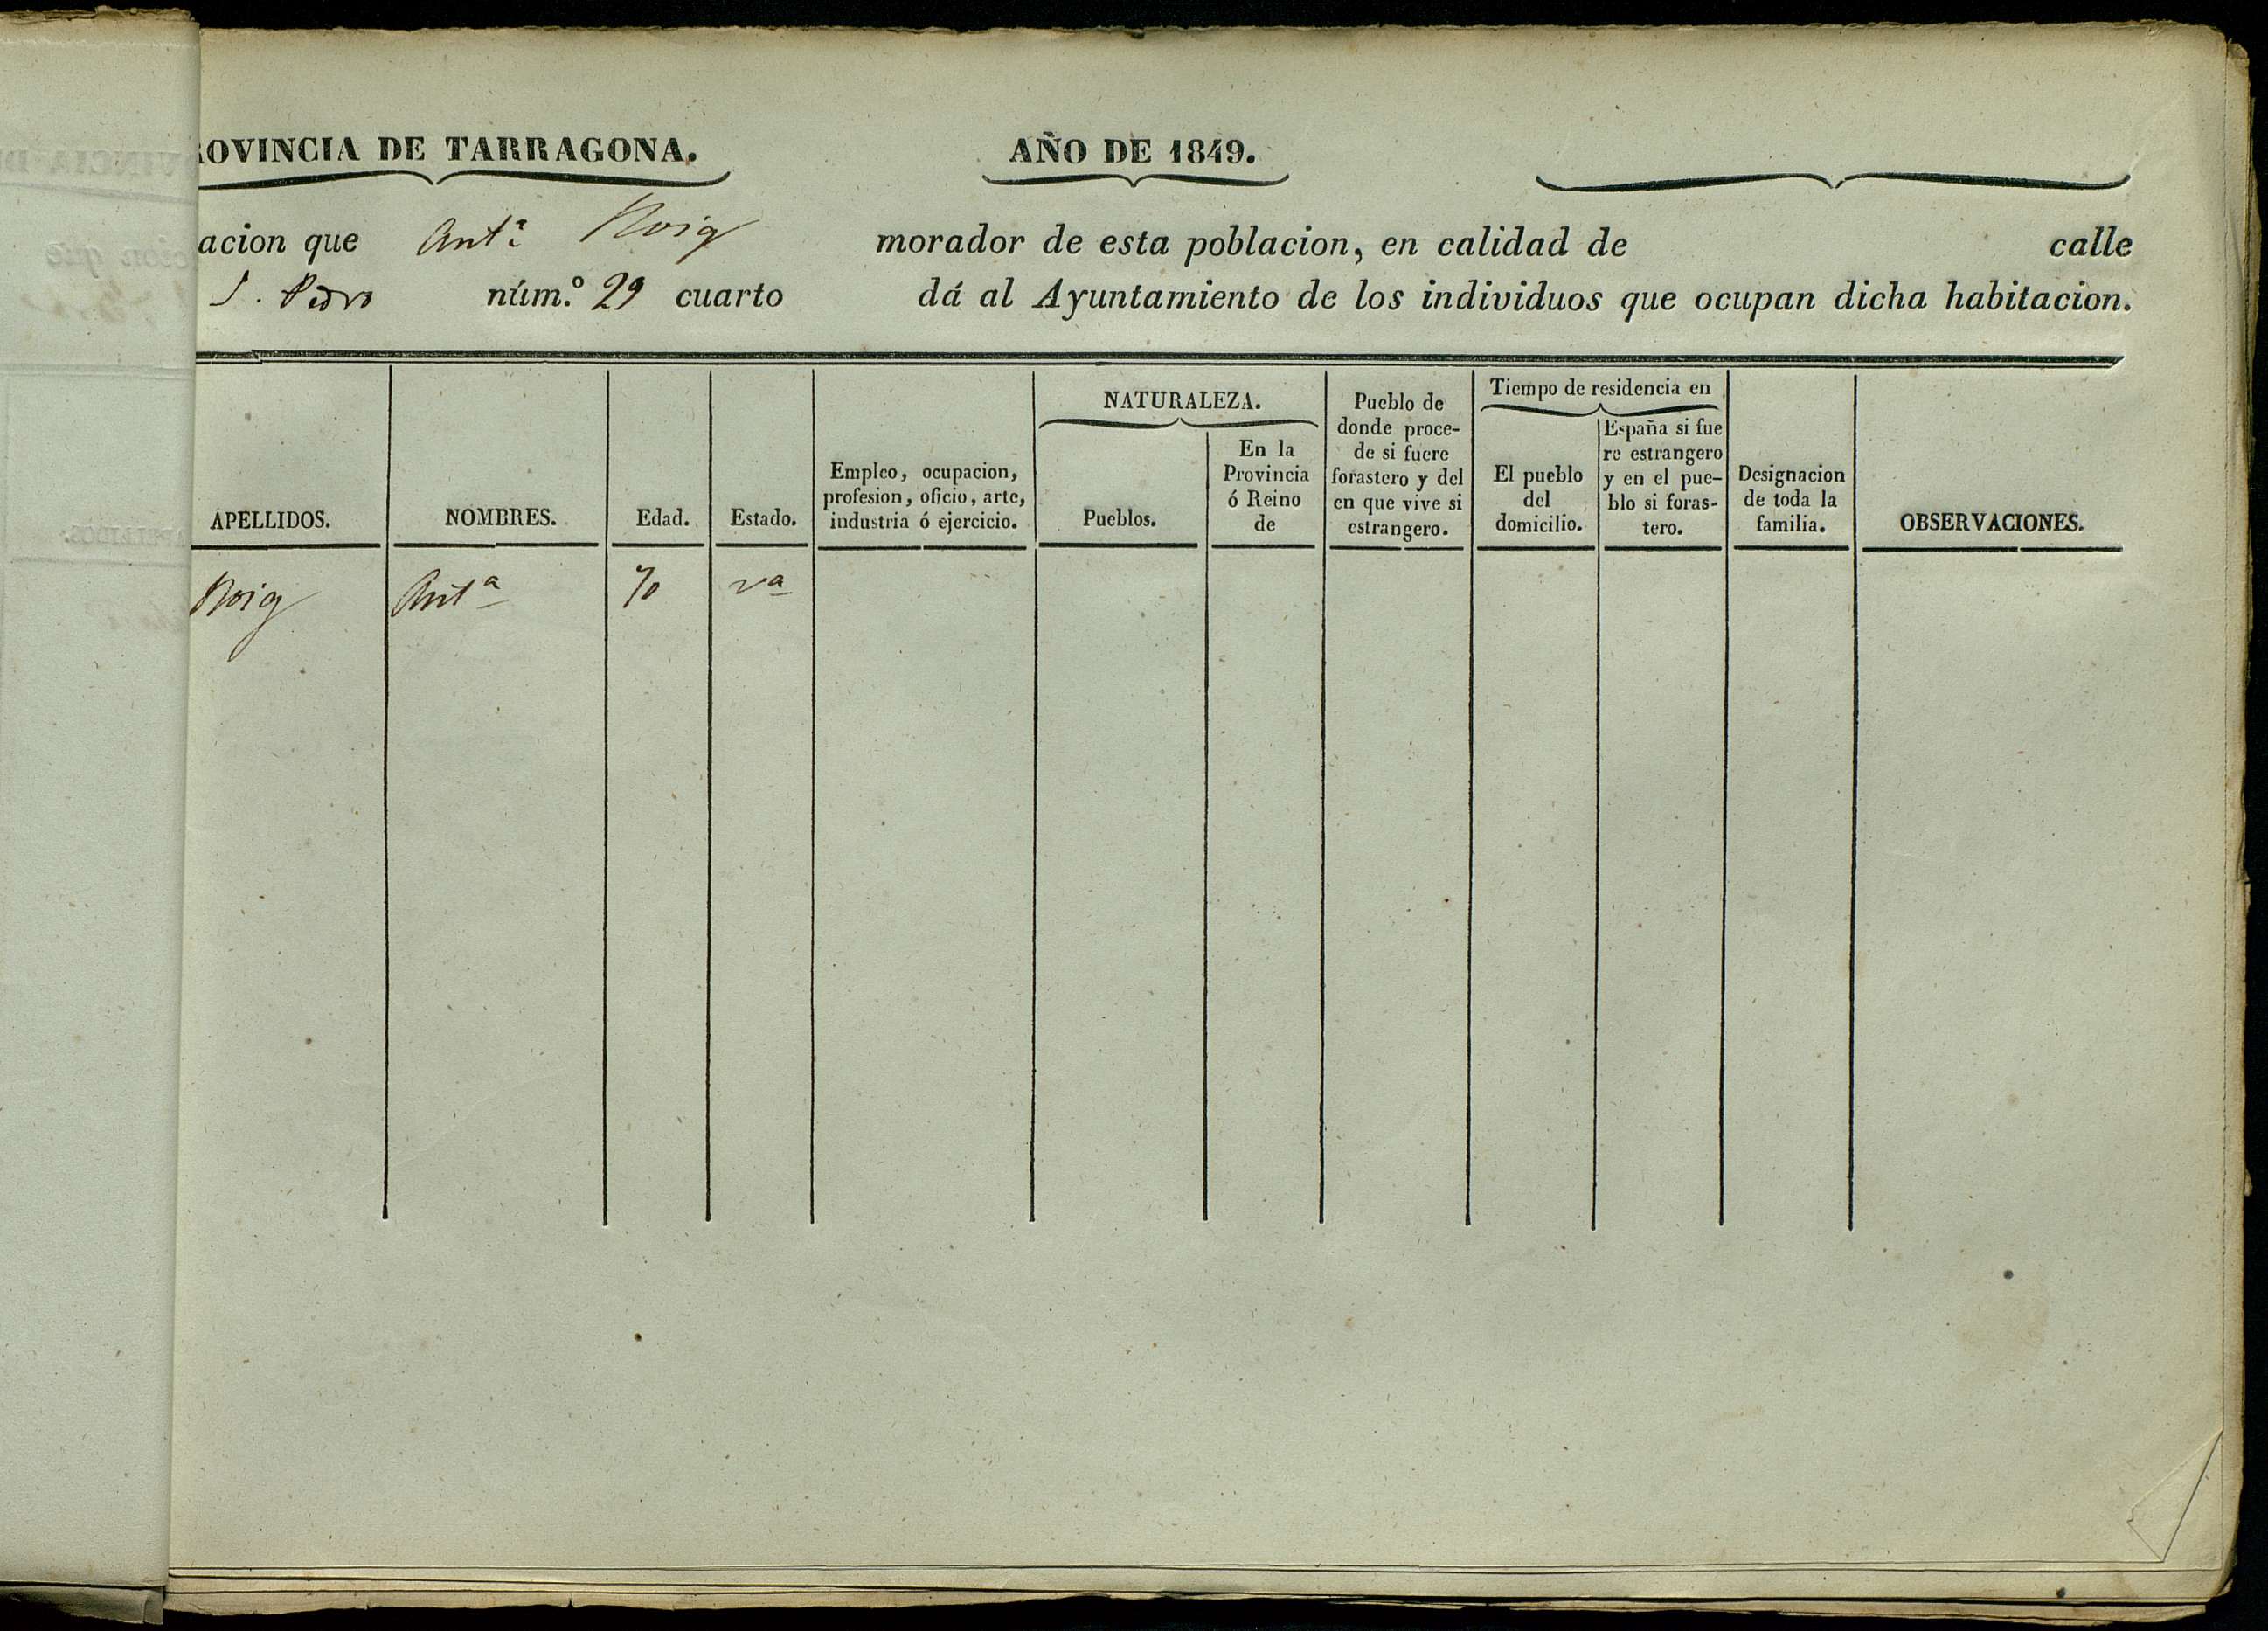 ROVINCIA DE TARRAGONA. AÑO DE 1849.
acion que Ant.ª Roig morador de esta poblacion, en calidad de calle
S. Pedro núm.º 29 cuarto dá al Ayuntamiento de los individuos que ocupan dicha habitacion.
APELLIDOS.
NOMBRES.
Edad.
Estado.
Empleo, ocupacion,
profesion, oficio, arte,
industria ó ejercicio.
NATURALEZA.
Pueblos.
En la
Provincia
ó Reino
de
Pueblo de
donde proce-
de si fuere
forastero y del
en que vive si
estrangero.
Tiempo de residencia en
El pueblo
del
domicilio.
España si fue
re estrangero
y en el pue-
blo si foras-
tero.
Designacion
de toda la
familia.
OBSERVACIONES.
Roig Antª 70 vª